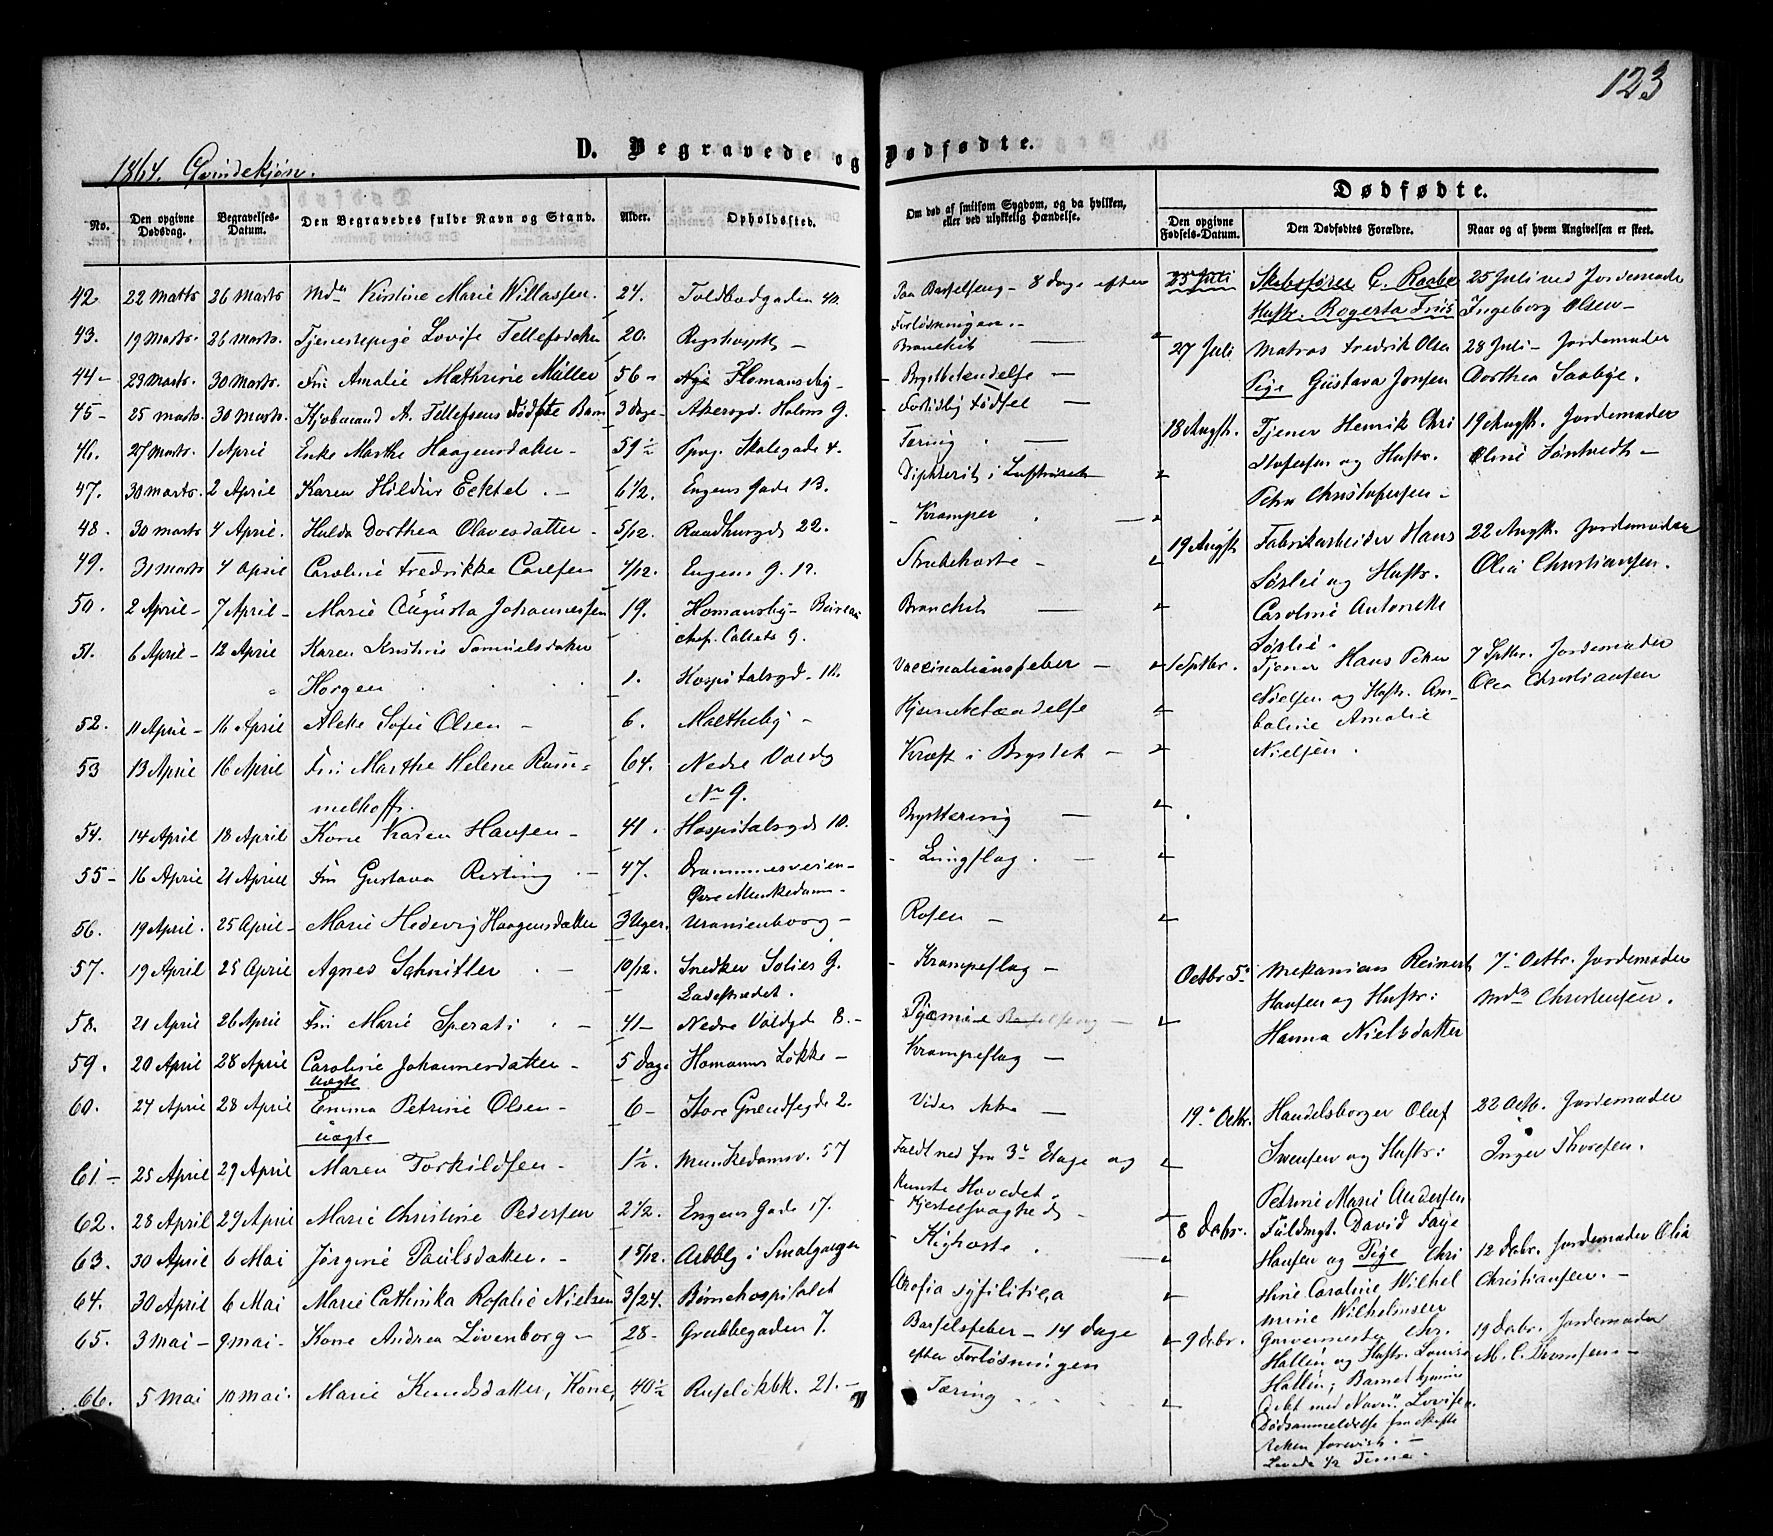 123
D. Begravede og Dødfødte.
1864. Qvindekjøn.
No. Den opgivne Dødsdag. Begravelses-Datum. Den Begravedes fulde Navn og Stand. Alder. Opholdssted.
Om død af smitsom Sygdom, og da hvilken, eller ved ulykkelig Hændelse.
Dødfødte.
Den opgivne Fødsels-Datum. Den Dødfødtes Forældre. Naar og af hvem Angivelsen er skeet.
42 22 Marts 26 Marts Mda Kristine Marie Willassen. 24. Toldbodgaden 40. Paa Barselseng - 8 dage efter
Forløsningen.
43. 19 Marts. 26 Marts. Tjenestepige Lovise Tellefsdatter 20. Rigshospit. Bronchit
44 - 23 Marts. 30 Marts. Fru Amalie Müller 56 - Homansby - Brystbetændelse -
45 - 25 Marts. 30 Marts. Kjøbmand A. Tellefsens dødfødte Barn 3 dage - Akersgd. Holms G. Fortidlig Fødsel -
46. 27 Marts. 1 April Enke Marthe Haagensdatter - 59½ Pposg. Skolegade 4. Tæring
47. 30 Marts. 2 April Karen Hildur - 6½. Engens Gade 13. Diphterit i Luftrøret
48. 30 Marts 4 April. Hulda Dorthea Olavesdatter - 5/12. Raadhusgd. 22. Kramper
49. 31 Marts 4 April Caroline Fredrikke Carlsen 4/12. Engens G. 12. Strubehoste -
50. 2 April - 7 April - Marie Augusta Johannessen 19. Homansby - Bronchit
51. 6 April - 12 April Karen Kristine Samuelsdatter
Horgen 1. Hospitalsgd. Vaccinationsfeber -
52. 11 April - 16 April Sofie Olsen - 6. Maltheby - Hjernebetændelse
53 13 April 16 April Fru Marthe Helene Rom-
melhoff. 64. Nedre Voldg
No 9. Kræft i Brystet -
54. 14 April 18 April Kone Karen Hansen - 41. Hospitalsgd. 10. Brysttæring -
55 - 16 April 21 April Fru Gustava Risting - 47. Drammensveien -
Øvre Munkedam - Lungeslag.
56. 19 April. 25 April - Marie Hedevig Haagensdatter 3 Uger. Uranienborg - Rosen -
57. 19 April 25 April Agnes Schnitler - 10/12. Snedker Solies G.
Ladestrædet. Krampeslag -
58. 21 April 26 April Fru Marie Sperati - 41 - Nedre Voldgd. 8. - Pyæmie Barselseng -
59. 20 April 28 April Caroline Johannesdatter -
uægte 5 dage Homanns Løkke - Krampeslag -
60. 24 April 28 April Emma Petrine Olsen -
uægte 6 - Store Grændsegde 2. Vides ikke -
61 - 25 April 29 April Maren Torkildsen - 1½. Munkedamsv. 57 Faldt ned fra 3die Etage og
knuste Hovedet.
62. 28 April 29 April Marie Christine Pedersen 2½. Engens Gade 17. Kjertelsvaghed -
63. 30 April 6 Mai Jørgine Paulsdatter. - 1 5/12. i Smalgangen Kighoste.
64. 30 April 6 Mai Marie Cathinka Rosalie Nielsen 3/24. Børnehospitalet Atrofia syfilitica
65. 3 Mai - 9 Mai - Kone Andrea Lövenborg - 28 - Grubbegaden 7. Barselsfeber - 14 dage
efter Forløsningen
66. 5 Mai 10 Mai. Marie Knudsdatter, Kone, 40½ Ruseløkbk. 21. - Tæring
25 Juli Skibsfører C. Raabe 25 Juli ved Jordemoder
Hustr. Rogerta Friis Ingeborg Olsen -
27 Juli Matros Fredrik Olsen 28 Juli - Jordemoder
Pige Gustava Jonsen Dorthea Saabye.
18 Augst. Tjener Henrik Chri 19 Augst. Jordemoder
stofersen og Hustr. Oline
Petra Christofersen -
19 Augst Fabrikarbeider Hans 22 Augst. Jordemoder
Sørlie og Hustr. Olia Christiansen.
Caroline Antonette
Sørlie.
1 Septbr. Tjener Hans Peter 7 Septbr. Jordemoder
Nielsen og Hustr. Am- Olea Christiansen
balie Amalie
Nielsen.
Octbr 5. Mekanicus Reinert 7. Octbr. Jordemoder
Hansen og Hustr: Mda Christensen.
Hanna Nielsdatter
19. Octbr. Handelsborger Oluf 22 Octb. Jordemoder
Svensen og Hustr: Inger Thoresen.
Petrine Marie Andersen
8 Decbr. Fuldmgt. David Faye
Hansen og Pige Chri 12 Decbr. Jordemoder Olia
stine Caroline Wilhel Christiansen. -
mine Wilhelmsen
9 Decbr. Chr. 19 Decbr. Jordemoder
Hallin og Hustr. Lovise M. C. Thomsen -
Hallin; Barnet hjemme
døbt med Navn: Lovise.
Dødsanmeldelse fra Skifte
Retten forevist. -
Levede ½ Time -